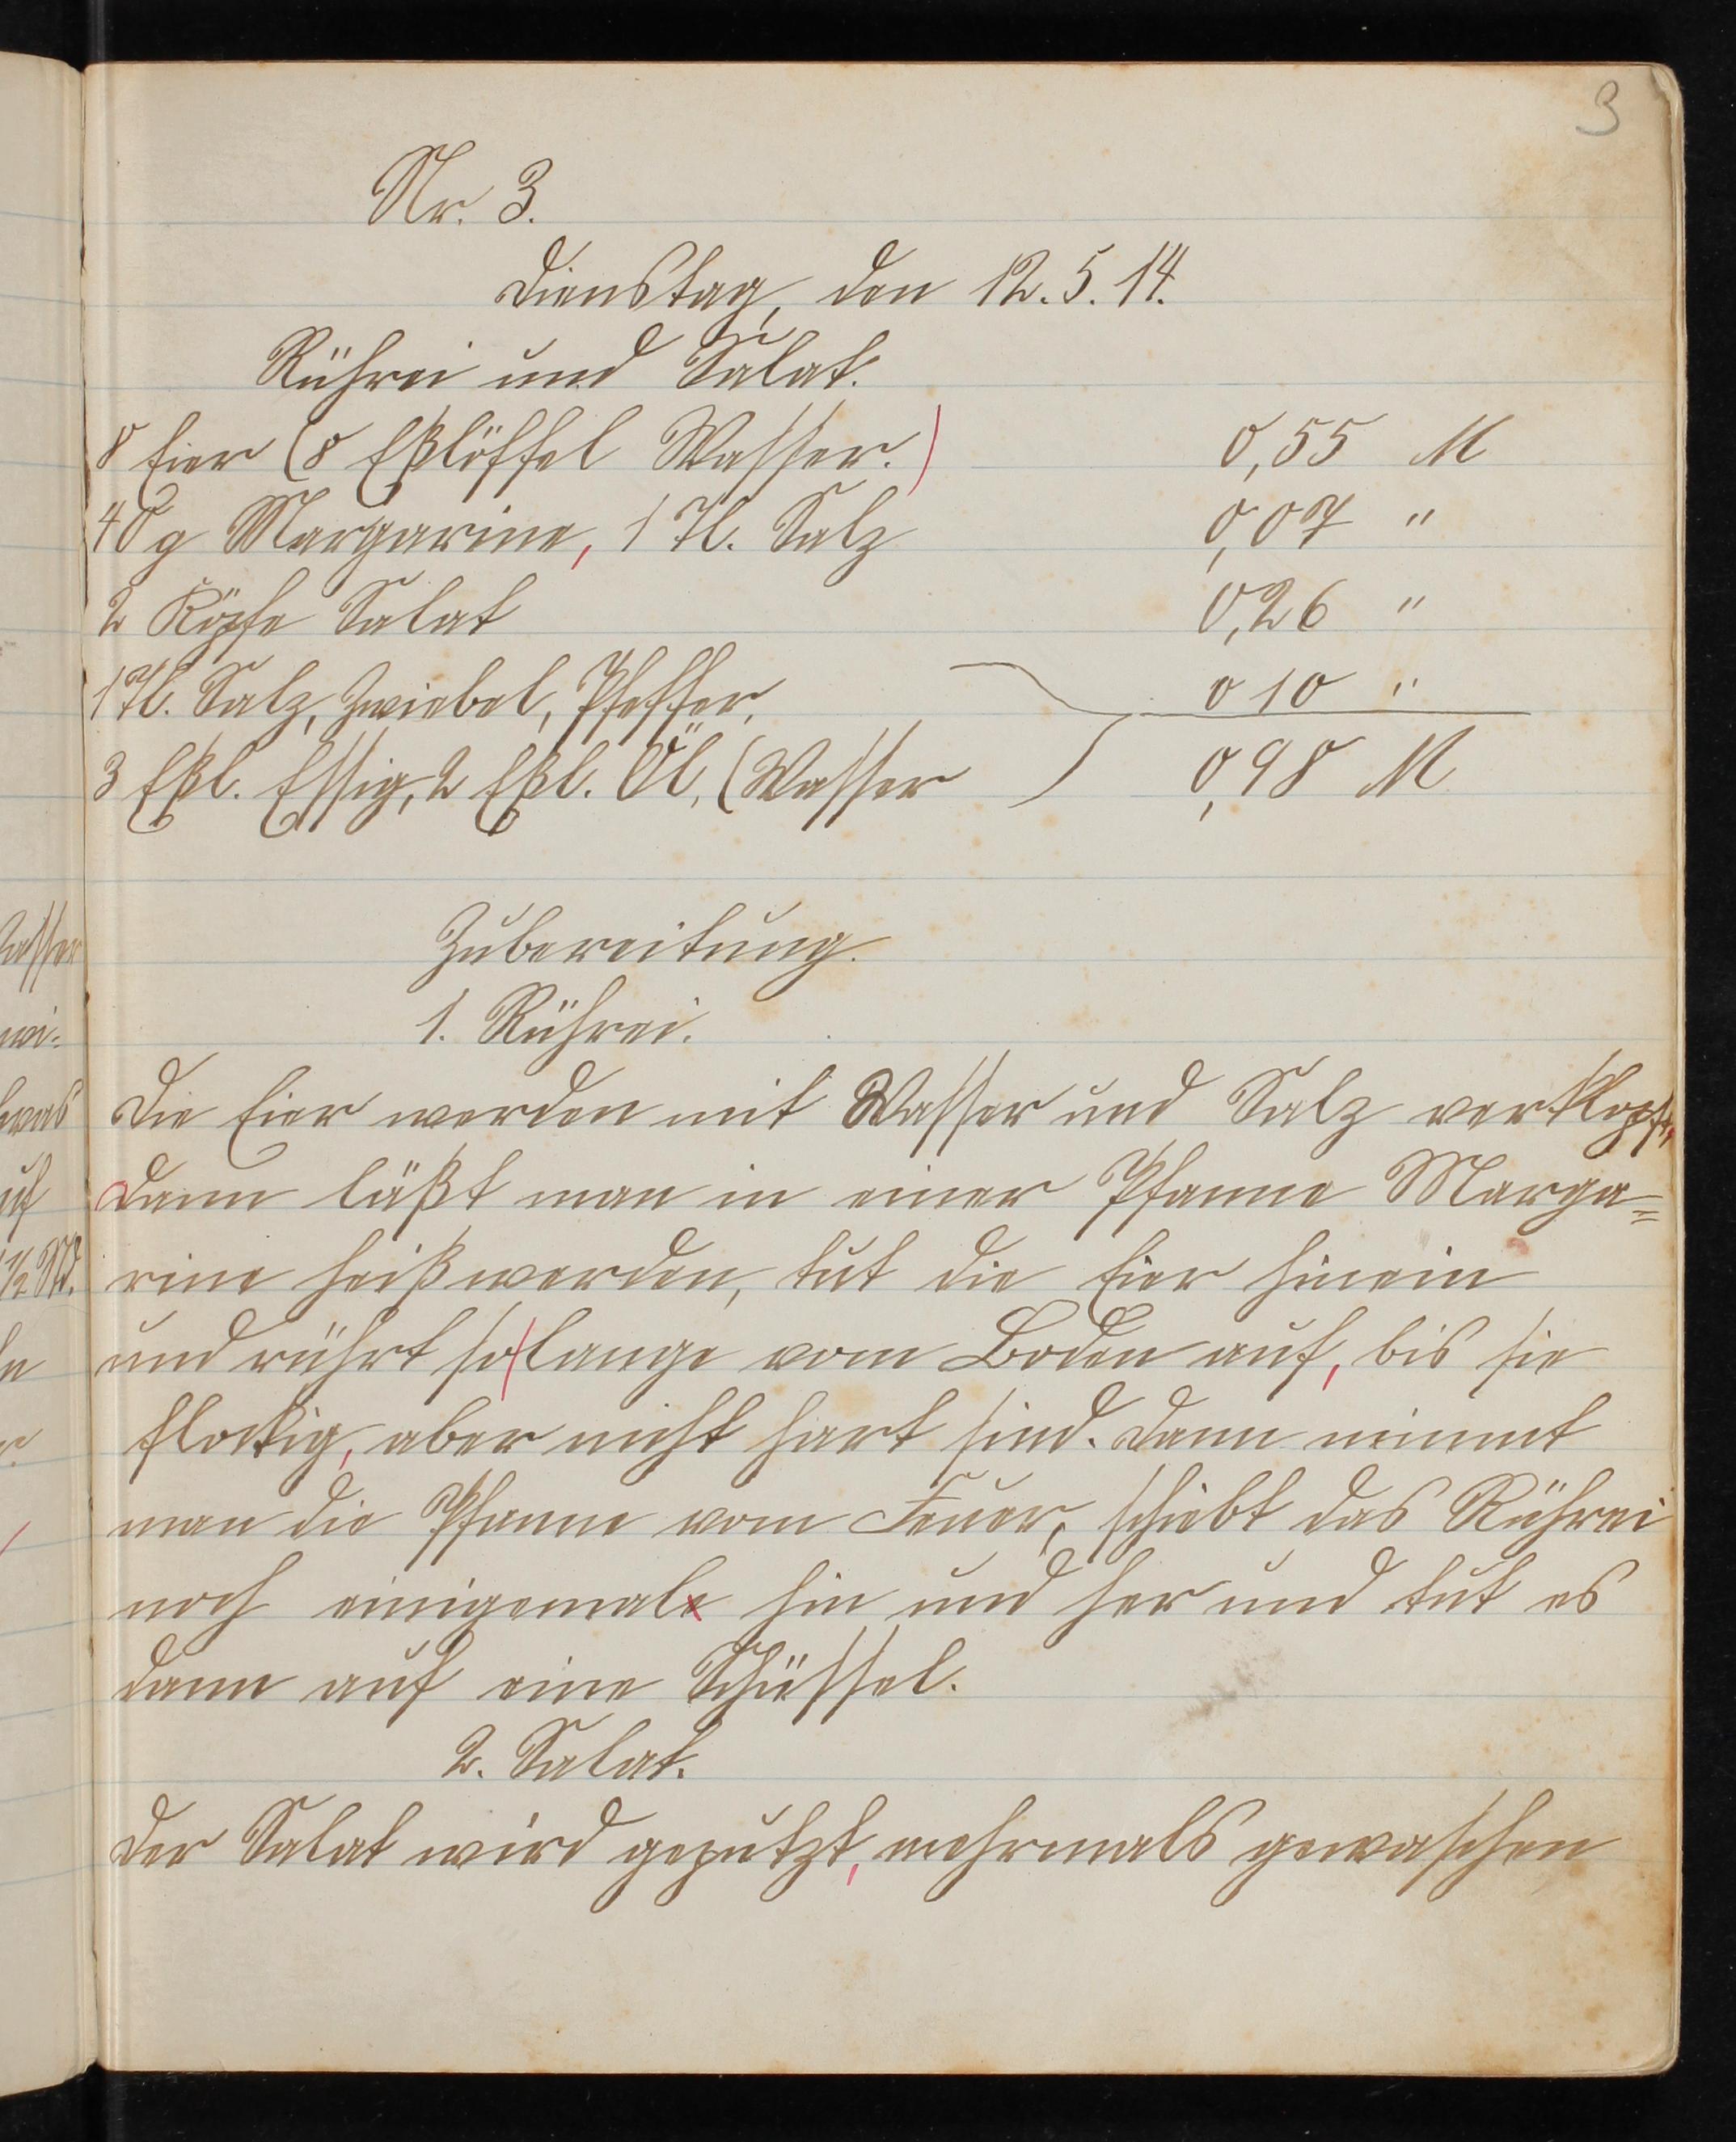 3
Nr. 3.
Dienstag, den 12. 5. 14.
Rührei und Salat.
8 Eier (8 Eßlöffel Wasser.) 0,55 M
40 g Margarine, 1 Tl. Salz 0,07 "
2 Köpfe Salat 0,26 "
1 Tl. Salz, Zwiebel, Pfeffer, 0 10 "
3 Eßl. Essig, 2 Eßl. Öl, (Wasser 0,98 M
Zubereitung.
1. Rührei.
Die Eier werden mit Wasser und Salz verklopft,
dann läßt man in einer Pfanne Marga=
rine heiß werden, tut die Eier hinein
und rührt so lange vom Boden auf, bis sie
flockig, aber nicht hart sind. Dann nimmt
man die Pfanne vom Feuer, schiebt das Rührei
noch einigemale hin und her und tut es
dann auf eine Schüssel.
2. Salat.
Der Salat wird geputzt, mehrmals gewaschen